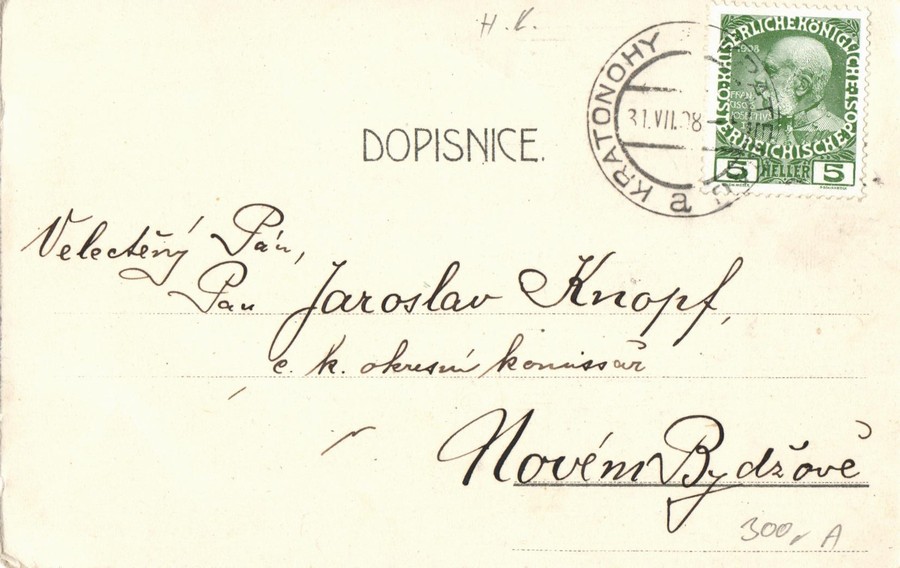 H. K.
KAISERLICHE KÖNIGLICHE ÖSTERREICHISCHE POST
1908
5 HELLER 5
KRATONOHY
31.VII.08
a
DOPISNICE.
Velectěný Pán,
Pan Jaroslav Knopf,
c. k. okresní komissár
Novém Bydžově
300,- A